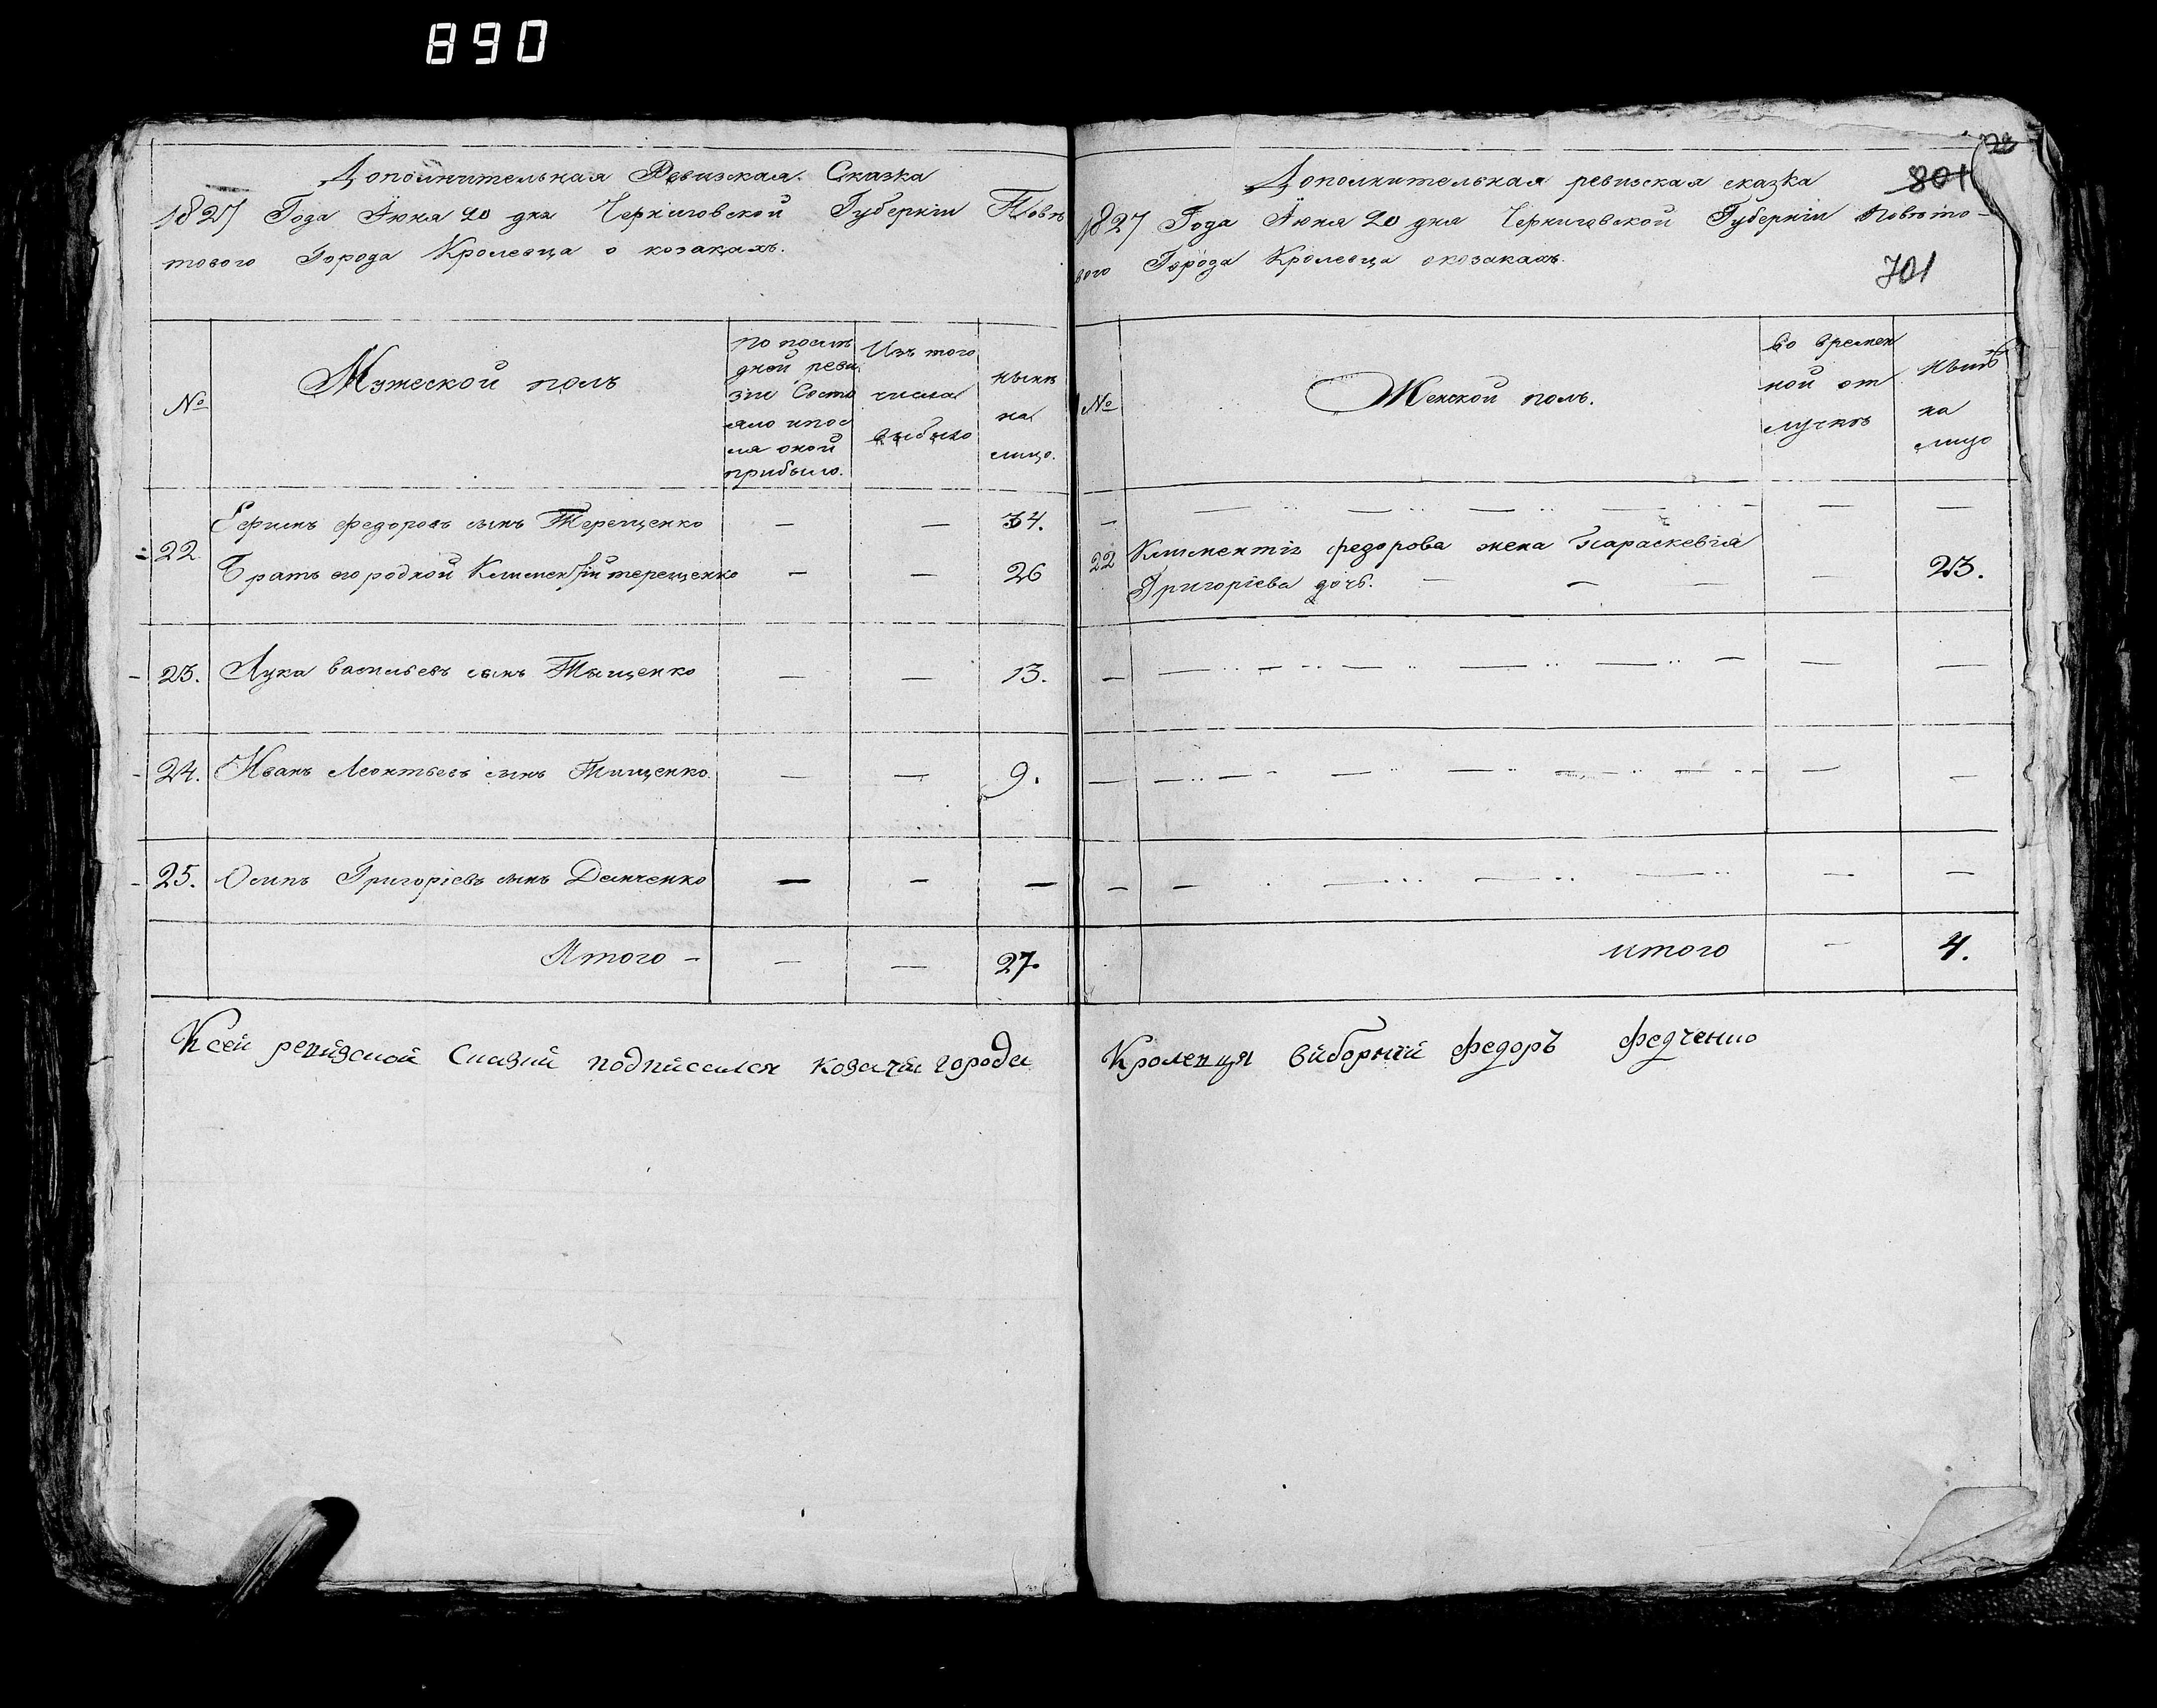 890
Дополнительная Ревизская Сказка
1827 Года Июня 20 дня Черниговской Губерніи Повѣ
тового Города Кролевца о козакахъ.
№
Мужеской полъ
по послѣ
дной реви
зіи Состо
яло ипос
ля оной
прибыло.
Изъ того
числа
выбыло
нынѣ
на
лицо.
22
Ефимъ федоровъ сынъ Терещенко — — 34.
Братъ его родной Климентій терещенко — — 26
23. Лука васильевъ сынъ Тыщенко — — 13.
24. Иванъ Леонтьевъ сынъ Тищенко — — 9.
25. Осипъ Григоріевъ сынъ Демченко — — —
Итого — — — 27.
Ксей ревизской Сказки подписался козачій города
22
801
Дополнительная ревизская сказка
1827 Года Июня 20 дня Черниговской Губерніи Повѣто-
вого Города Кролевца окозакахъ.
701
№
Женской полъ.
во времен
ной от
лучкѣ
нынѣ
на
лицо
22 Климентія федорова жена Параскевія
Григоріева дочь. — — — — 23.
итого — 4.
Кролевця виборный Федоръ Федченко